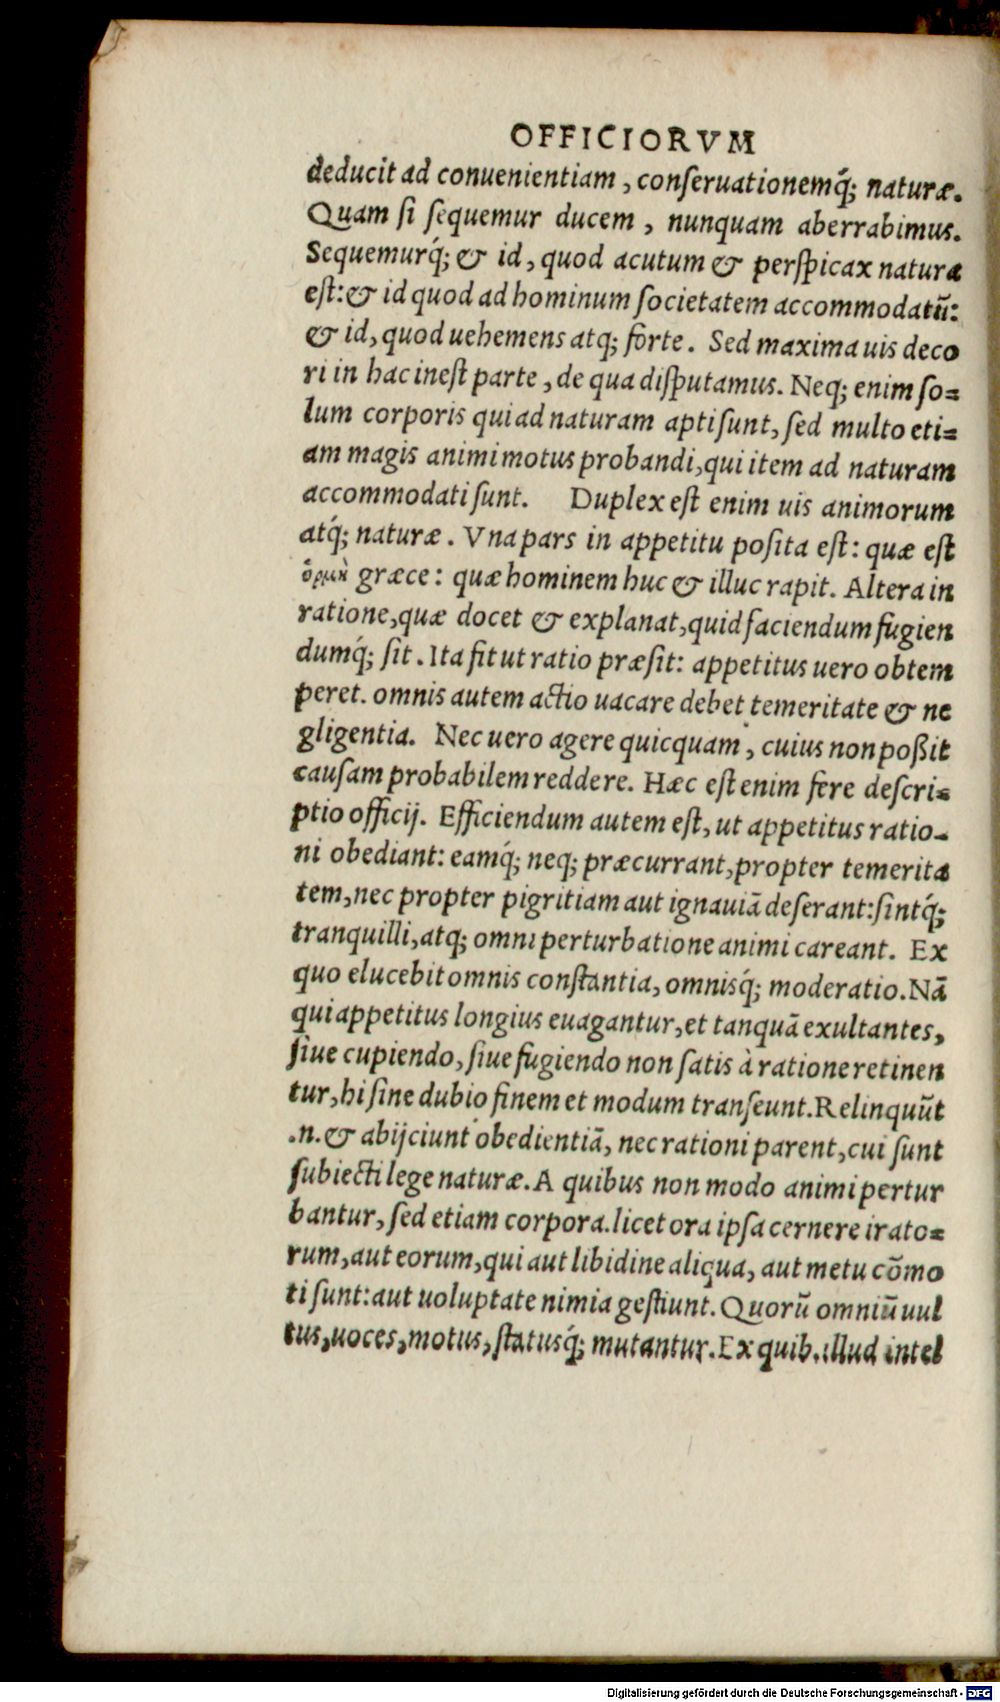 OFFICIORVM
deducit ad conuenientiam, conſeruationemq́; naturæ.
Quam ſi ſequemur ducem, nunquam aberrabimus.
Sequemurq́; & id, quod acutum & perſpicax natura
eſt: & id quod ad hominum ſocietatem accommodatũ:
& id, quod uehemens atq; forte. Sed maxima uis deco
ri in hac ineſt parte, de qua diſputamus. Neq; enim ſo=
lum corporis qui ad naturam apti ſunt, ſed multo eti=
am magis animi motus probandi, qui item ad naturam
accommodati ſunt. Duplex eſt enim uis animorum
atq́; naturæ. Vna pars in appetitu poſita eſt: quæ eſt
ὁρμὴ græce: quæ hominem huc & illuc rapit. Altera in
ratione, quæ docet & explanat, quid faciendum fugien
dumq́; ſit. Ita fit ut ratio præſit: appetitus uero obtem
peret. omnis autem actio uacare debet temeritate & ne
gligentia. Nec uero agere quicquam, cuius non poßit
cauſam probabilem reddere. Hæc eſt enim fere deſcri=
ptio officij. Efficiendum autem eſt, ut appetitus ratio-
ni obediant: eamq́; neq; præcurrant, propter temerita
tem, nec propter pigritiam aut ignauiã deſerant: ſintq́;
tranquilli, atq; omni perturbatione animi careant. Ex
quo elucebit omnis conſtantia, omnisq́; moderatio. Nã
qui appetitus longius euagantur, et tanquã exultantes,
ſiue cupiendo, ſiue fugiendo non ſatis à ratione retinen
tur, hi ſine dubio finem et modum tranſeunt. Relinquũt
.n. & abijciunt obedientiã, nec rationi parent, cui ſunt
ſubiecti lege naturæ. A quibus non modo animi pertur
bantur, ſed etiam corpora. licet ora ipſa cernere irato=
rum, aut eorum, qui aut libidine aliqua, aut metu cõmo
ti ſunt: aut uoluptate nimia geſtiunt. Quorũ omniũ uul
tus, uoces, motus, ſtatusq́; mutantur. Ex quib. illud intel
Digitalisierung gefördert durch die Deutsche Forschungsgemeinschaft - DFG